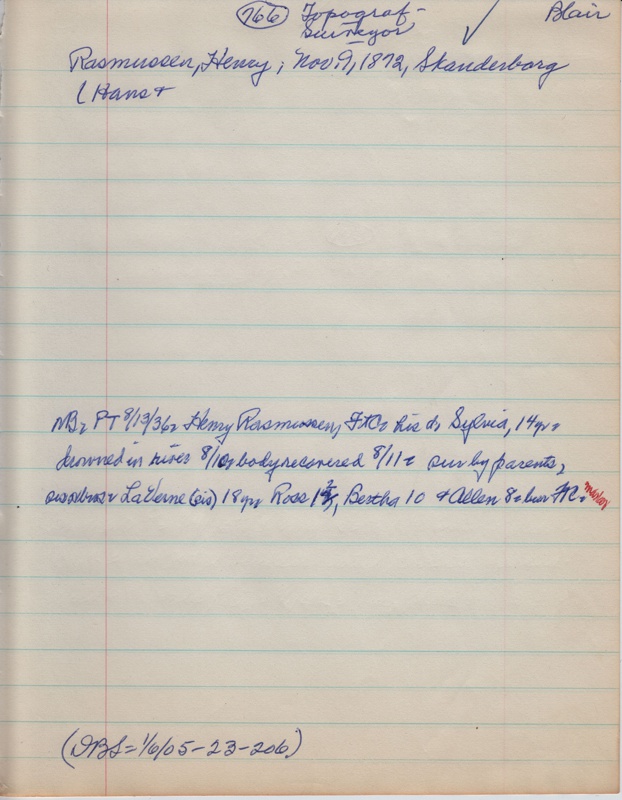 766 Topograf- Blair
Surveyor
Rasmussen, Henry; Nov. 9, 1872, Skanderborg
(Hans +
NB= PT 8/13/36= Henry Rasmussen, his d. Sylvia, 14yr=
drowned in river 8/10= body recovered 8/11= sur by parents,
LaVerne (sis) 18yr Ross, Bertha 10 + Allen 8= bur
(DBS=1/6/05-23-206)